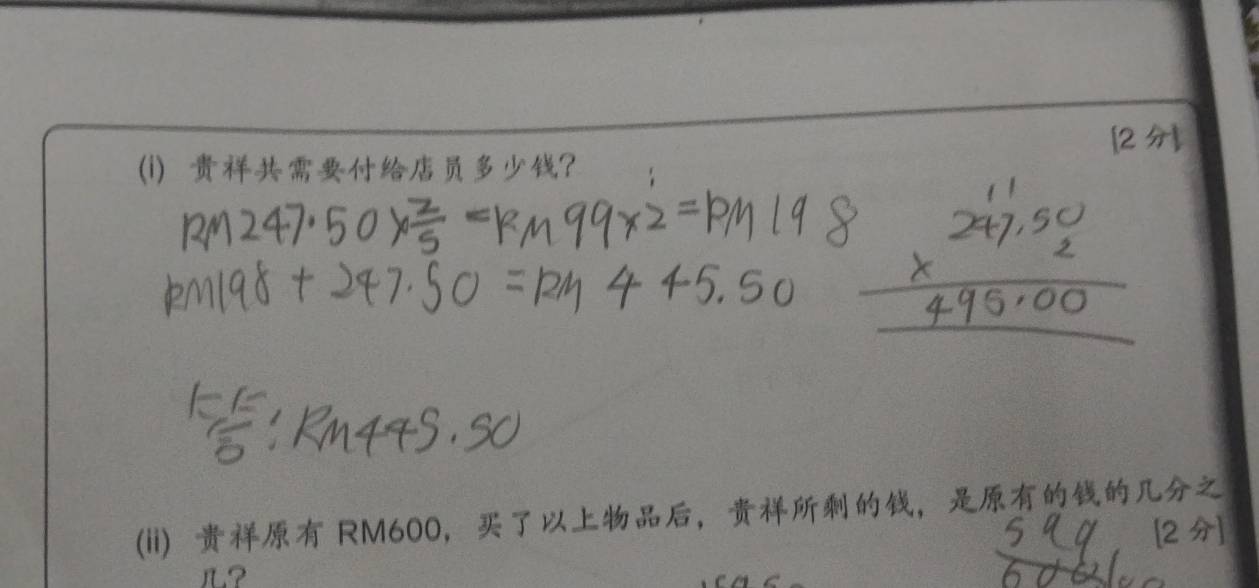 [2分]
(i) 贵祥共需要付给店员多少钱?
RM247.50×2/5 = RM99×2 = RM198
RM198 + 247.50 = RM445.50
11
247.50
× 2
495.00
答: RM445.50
(ii) 贵祥原有 RM600, 买了以上物品后, 贵祥所剩的钱, 是原有的钱的几分之
几?
[2分]
599